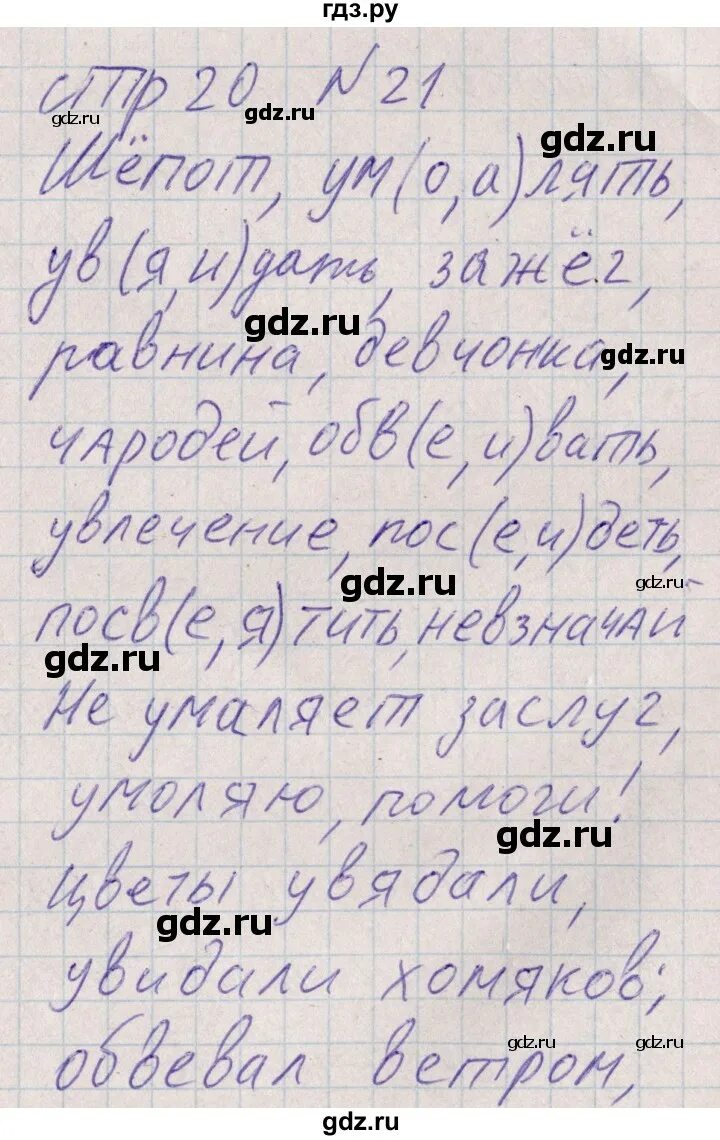 гдз.ру
стр 20 № 21
gdz.ru
gdz.ru
gdz.ru
Шёпот, ум(о,а)лять,
ув(я,и)дать, зажёг,
gdz.ru
равнина, девчонка,
gdz.ru
чАродей, обв(е,и)вать,
увлечение, пос(е,и)деть,
gdz.ru
gdz.ru
посв(е,я)тить, невзначАй
gdz.ru
Не умаляет заслуг,
умоляю, помоги!
gdz.ru
Цветы увядали,
gdz.ru
увидали хомяков;
обвевал ветром,
gdz.ru
gdz.ru
gdz.ru